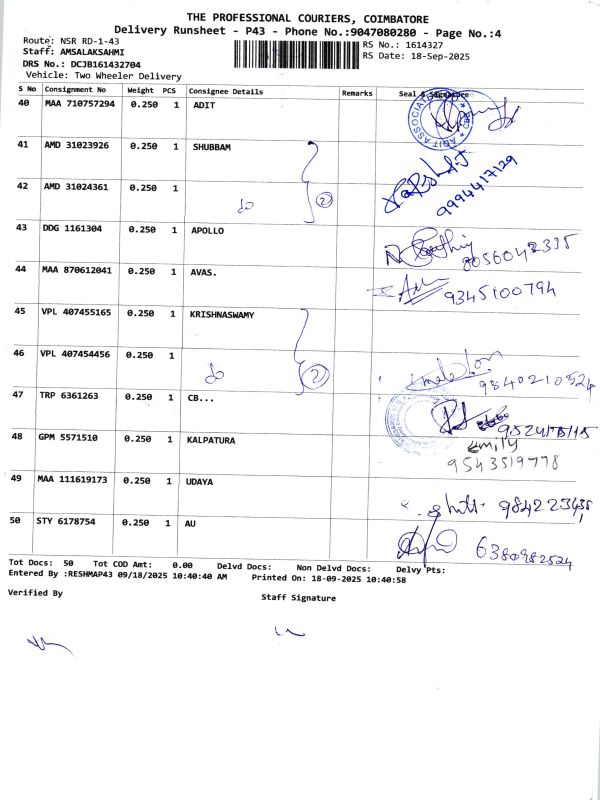 THE PROFESSIONAL COURIERS, COIMBATORE
Delivery Runsheet - P43 - Phone No.:9047080280 - Page No.:4
Route: NSR RD-1-43 RS No.: 1614327
Staff: AMSALAKSAHMI RS Date: 18-Sep-2025
DRS No.: DCJB161432704
Vehicle: Two Wheeler Delivery
S No Consignment No Weight PCS Consignee Details Remarks Seal & Signature
40 MAA 710757294 0.250 1 ADIT
ADIT ASSOCIATE
41 AMD 31023926 0.250 1 SHUBBAM
42 AMD 31024361 0.250 1 do 2 9994417129
43 DDG 1161304 0.250 1 APOLLO 8056042335
44 MAA 870612041 0.250 1 AVAS. 9345100794
45 VPL 407455165 0.250 1 KRISHNASWAMY
46 VPL 407454456 0.250 1 do 2 9840210524
47 TRP 6361263 0.250 1 CB...
48 GPM 5571510 0.250 1 KALPATURA Emily
9543519778
49 MAA 111619173 0.250 1 UDAYA
50 STY 6178754 0.250 1 AU 6380982524
Tot Docs: 50 Tot COD Amt: 0.00 Delvd Docs: Non Delvd Docs: Delvy Pts:
Entered By :RESHMAP43 09/18/2025 10:40:40 AM Printed On: 18-09-2025 10:40:58
Verified By Staff Signature